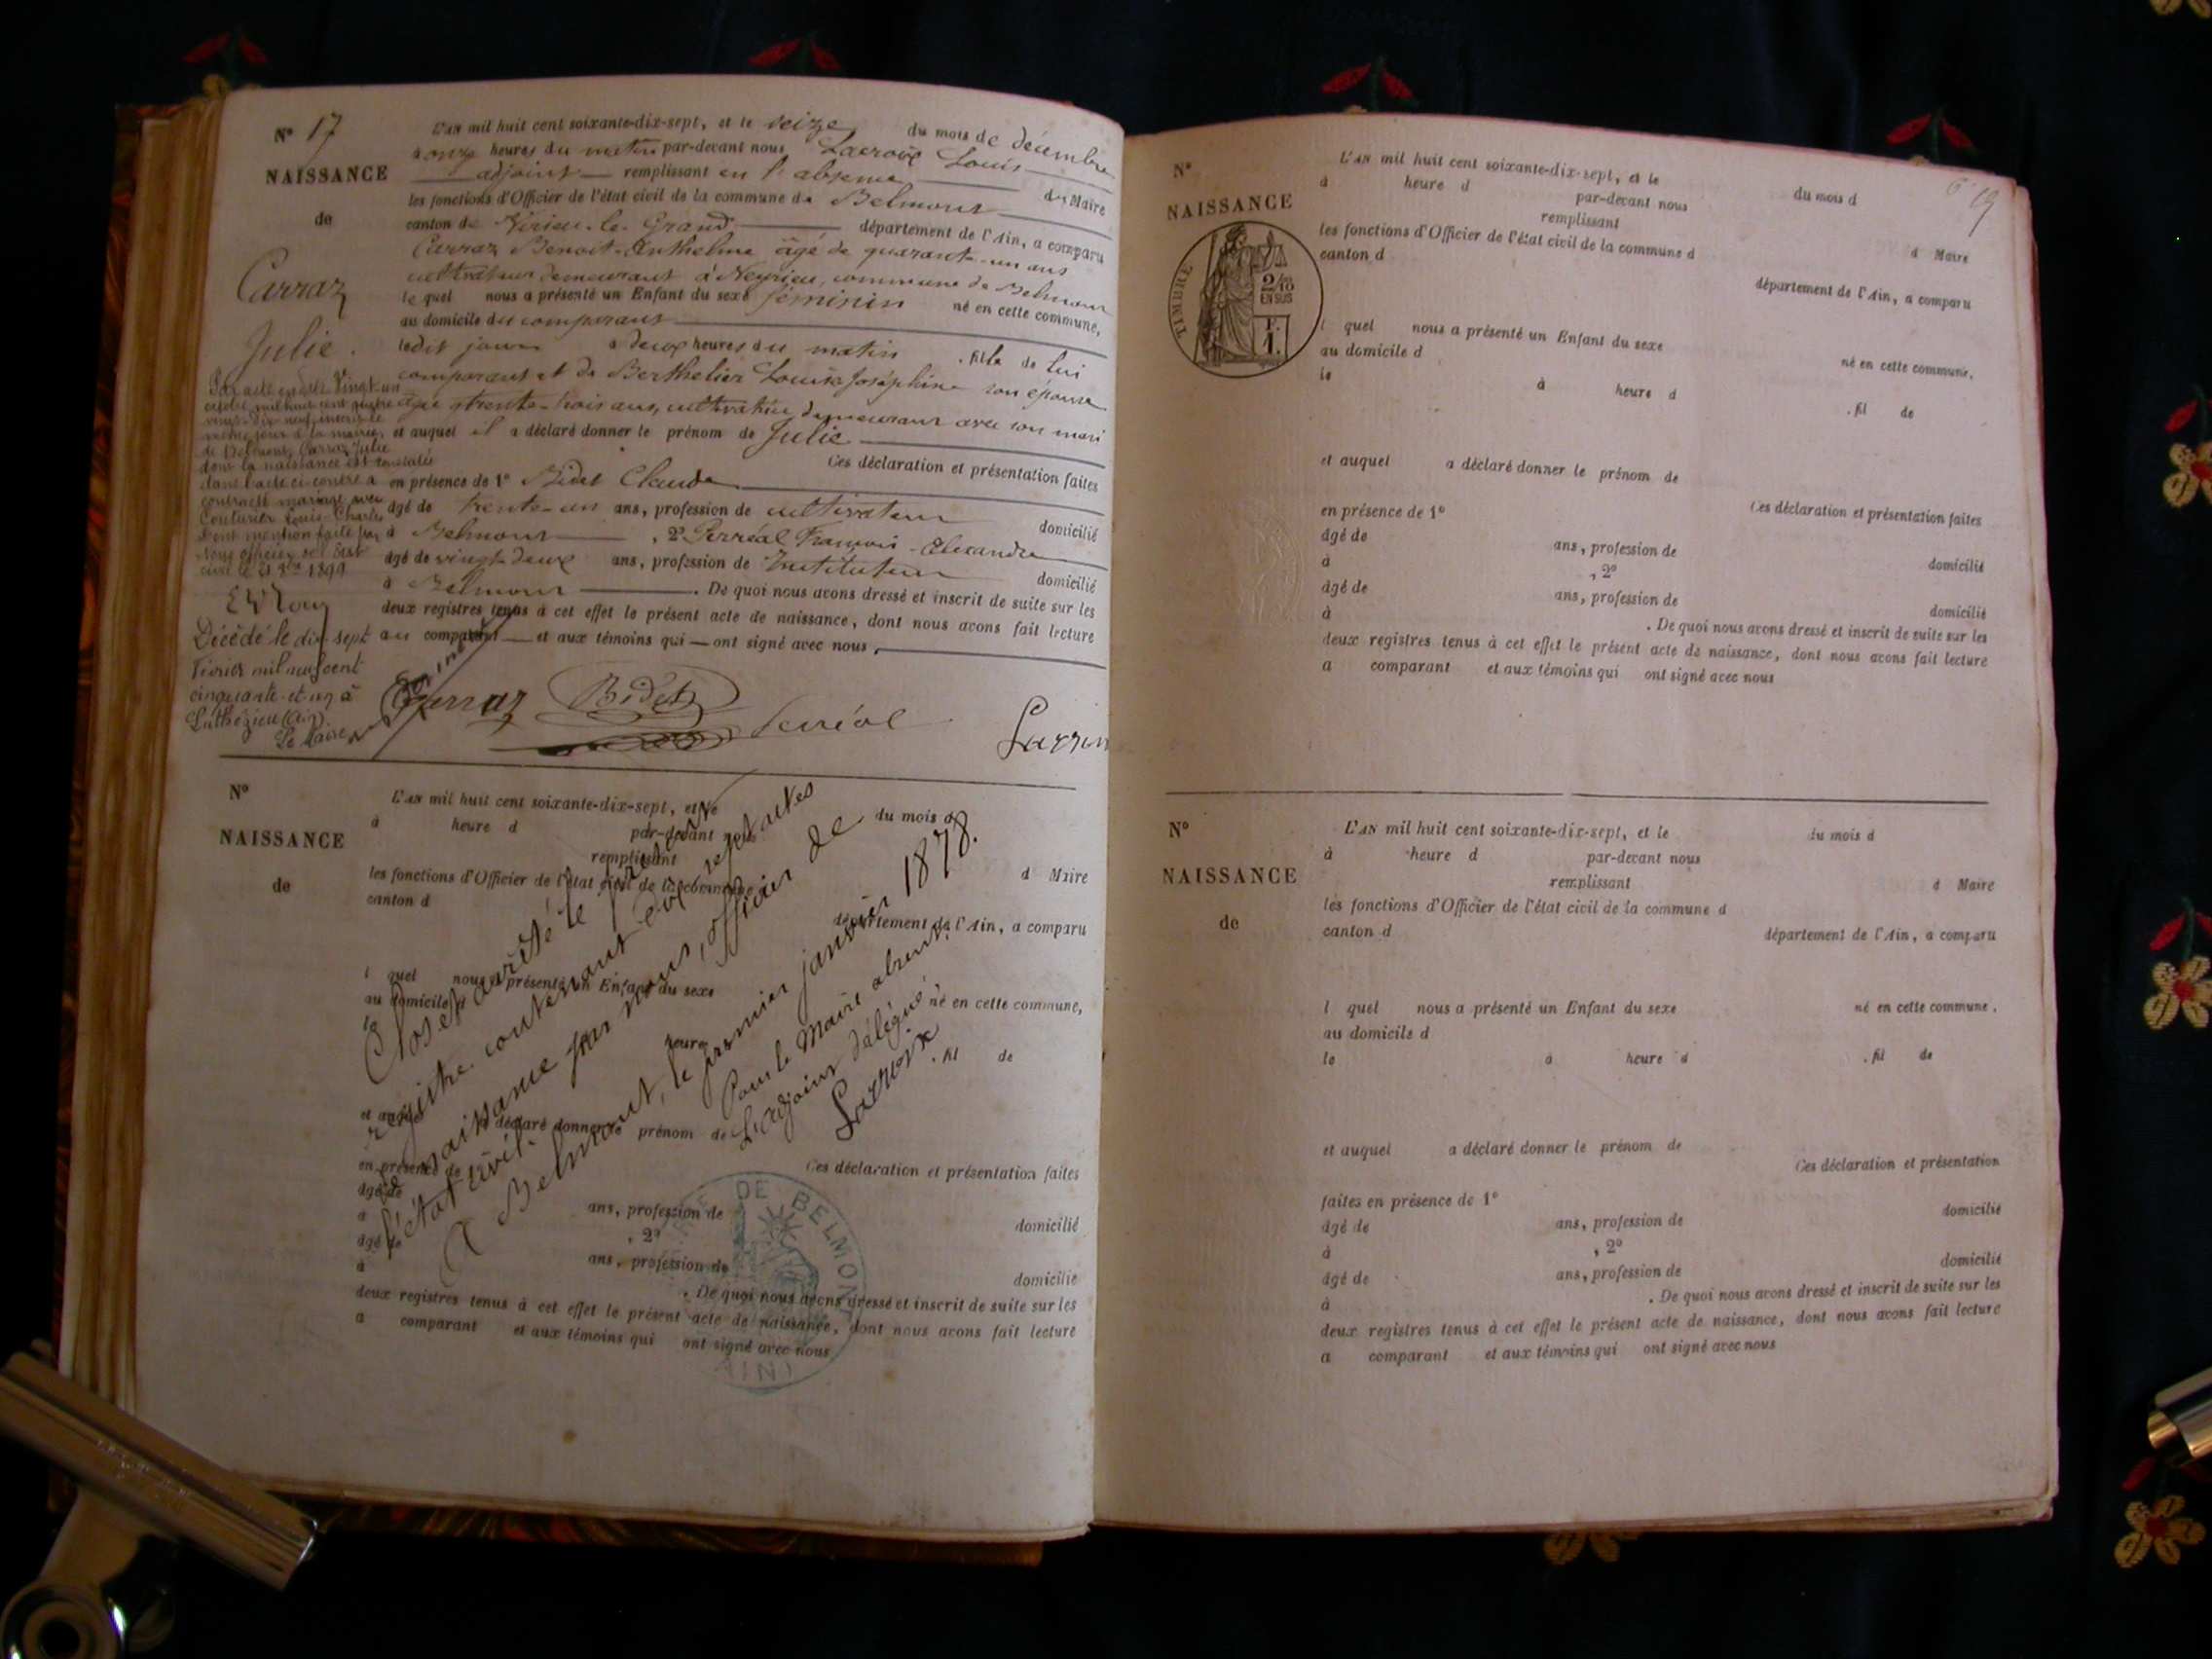 N° 17
NAISSANCE
de
Carraz
Julie.
L'AN mil huit cent soixante-dix-sept, et le seize du mois de décembre
à onze heures du matin par-devant nous Lacroix Louis
adjoint remplissant en l'absence du Maire
les fonctions d'Officier de l'état civil de la commune de Belmont
canton de Virieu-le-Grand département de l'Ain, a comparu
Carraz Benoit-Anthelme âgé de quarante-un ans
cultivateur demeurant à Neyrieu, commune de Belmont
lequel nous a présenté un Enfant du sexe féminin né en cette commune,
au domicile du comparant
ledit jour à deux heures du matin , fille de lui
comparant et de Berthelier Louise Joséphine son épouse
âgée trente-trois ans, cultivatrice, demeurant avec son mari
et auquel il a déclaré donner le prénom de Julie
Ces déclaration et présentation faites
en présence de 1° Bidet Claude
âgé de trente-un ans, profession de cultivateur domicilié
à Belmont , 2° Perréal François-Alexandre
âgé de vingt-deux ans, profession de Instituteur domicilié
à Belmont . De quoi nous avons dressé et inscrit de suite sur les
deux registres tenus à cet effet le présent acte de naissance, dont nous avons fait lecture
au comparant et aux témoins qui ont signé avec nous,
Par acte en date vingt un
octobre mil huit cent quatre
vingt-dix-neuf, inscrit le
même jour à la mairie
de Belmont, Carraz Julie
dont la naissance est constatée
dans l'acte ci-contre a
contracté mariage avec
Couturier Louis-Charles
Dont mention faite par
Nous officier de l'état
civil le 21 8bre 1899
Décédé le dix-sept
Février mil neuf cent
cinquante-et-un à
Luthézieu (Ain).
Le Maire
Carraz Bidet Perréal Lacroix
N°
NAISSANCE
de
L'AN mil huit cent soixante-dix-sept, et le du mois d
à heure d par-devant nous
remplissant d Maire
les fonctions d'Officier de l'état civil de la commune d
canton d département de l'Ain, a comparu
l quel nous a présenté un Enfant du sexe né en cette commune,
au domicile d
le heure , fil de
et auquel a déclaré donner le prénom de
Ces déclaration et présentation faites
en présence de
âgé de ans, profession de domicilié
à , 2°
âgé de ans, profession de domicilié
à . De quoi nous avons dressé et inscrit de suite sur les
deux registres tenus à cet effet le présent acte de naissance, dont nous avons fait lecture
a comparant et aux témoins qui ont signé avec nous
Clos et arrêté le présent
registre contenant dix sept actes
de naissance par nous, officier de
l'état civil.
A Belmont, le premier janvier 1878.
Pour le Maire absent
L'adjoint délégué
Lacroix
MAIRIE DE BELMONT
(AIN)
19
N°
NAISSANCE
TIMBRE
2/10
EN SUS
F.
1.
L'AN mil huit cent soixante-dix-sept, et le du mois d
à heure d par-devant nous
remplissant d Maire
les fonctions d'Officier de l'état civil de la commune d
canton d département de l'Ain, a comparu
l quel nous a présenté un Enfant du sexe né en cette commune,
au domicile d
le à heure d , fil de
et auquel a déclaré donner le prénom de
Ces déclaration et présentation faites
en présence de 1°
âgé de ans, profession de domicilié
à , 2°
âgé de ans, profession de domicilié
à . De quoi nous avons dressé et inscrit de suite sur les
deux registres tenus à cet effet le présent acte de naissance, dont nous avons fait lecture
a comparant et aux témoins qui ont signé avec nous
N°
NAISSANCE
de
L'AN mil huit cent soixante-dix-sept, et le du mois d
à heure d par-devant nous
remplissant d Maire
les fonctions d'Officier de l'état civil de la commune d
canton d département de l'Ain, a comparu
l quel nous a présenté un Enfant du sexe né en cette commune,
au domicile d
le à heure d , fil de
et auquel a déclaré donner le prénom de
Ces déclaration et présentation
faites en présence de 1°
âgé de ans, profession de domicilié
à , 2°
âgé de ans, profession de domicilié
à . De quoi nous avons dressé et inscrit de suite sur les
deux registres tenus à cet effet le présent acte de naissance, dont nous avons fait lecture
a comparant et aux témoins qui ont signé avec nous